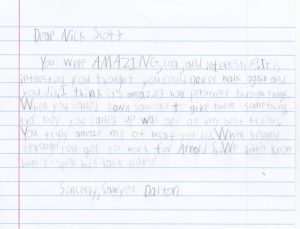 Dear Nick Scott
You were AMAZING, cool, and interesting. It is
interesting you thought you could never walk again and
you did. I think its amazing how persevere through things.
When you called down someone to give them something
the boy you called up was one of my best friends.
You truly amaze me of what you did. When became
strong you got to work for Arnold S. We didn't know
him to spell his last name.
Sincerly, Sawyer Dalton